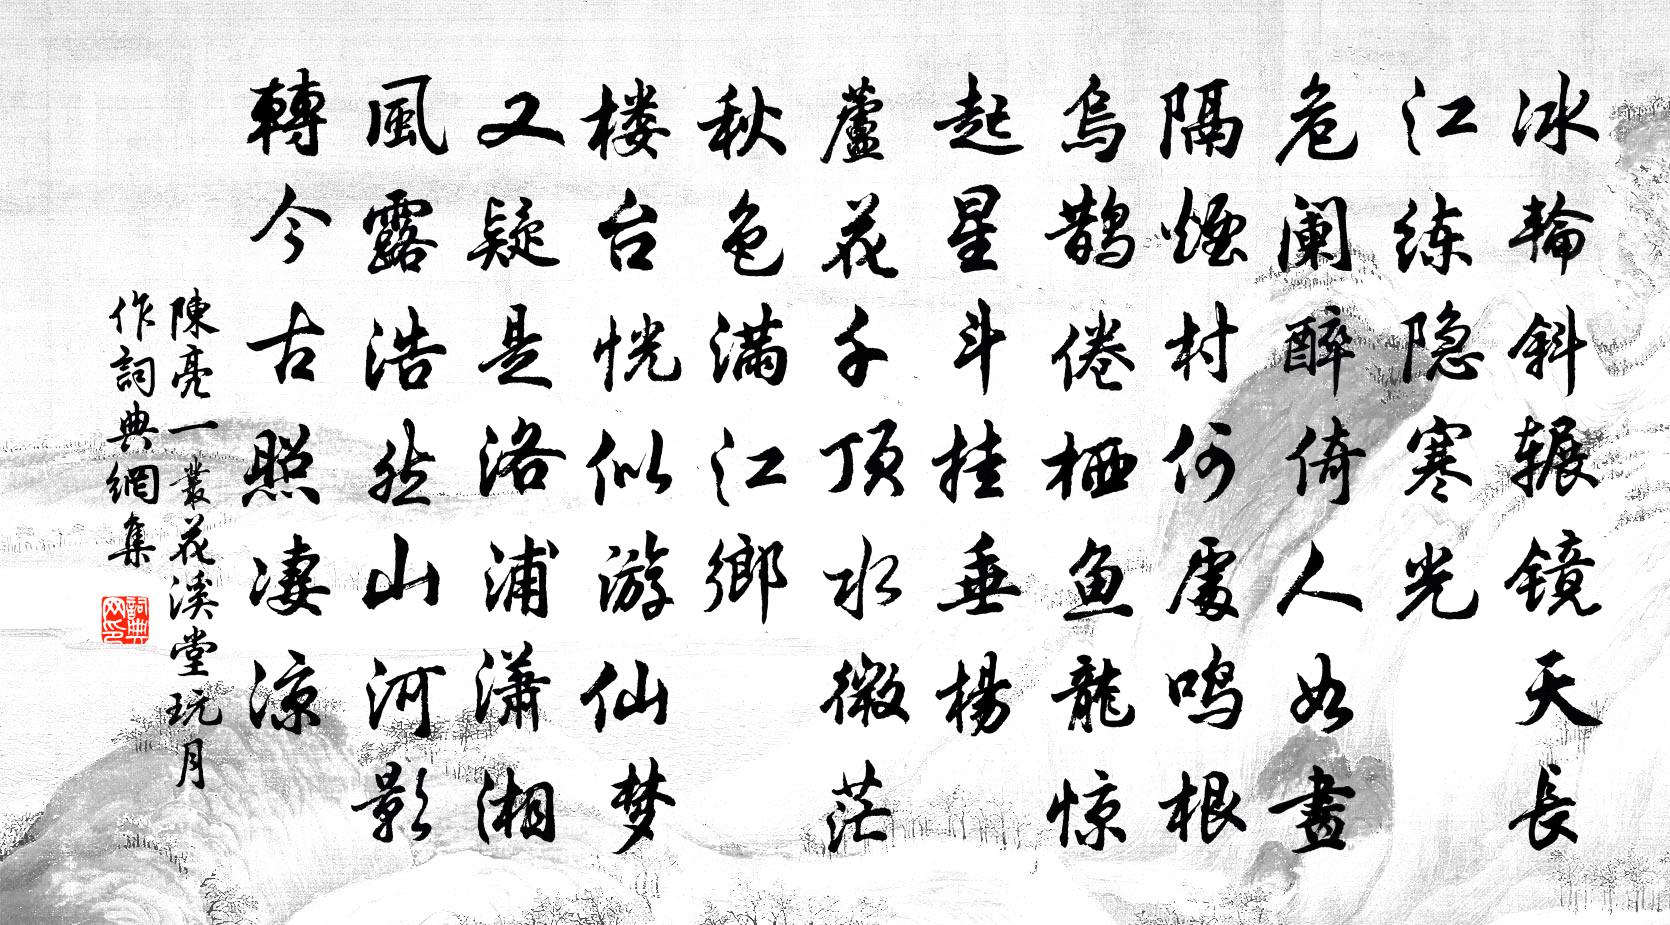 冰輪斜辗镜天長
江练隐寒光
危阑醉倚人如畫
隔煙村何處鸣根
烏鹊倦栖鱼龍惊
起星斗挂垂楊
蘆花千顶水微茫
秋色滿江鄉
楼台恍似游仙梦
又疑是洛浦潇湘
風露浩然山河影
轉今古照凄涼
陳亮一叢花溪堂玩月
作詞典網集
詞典网印